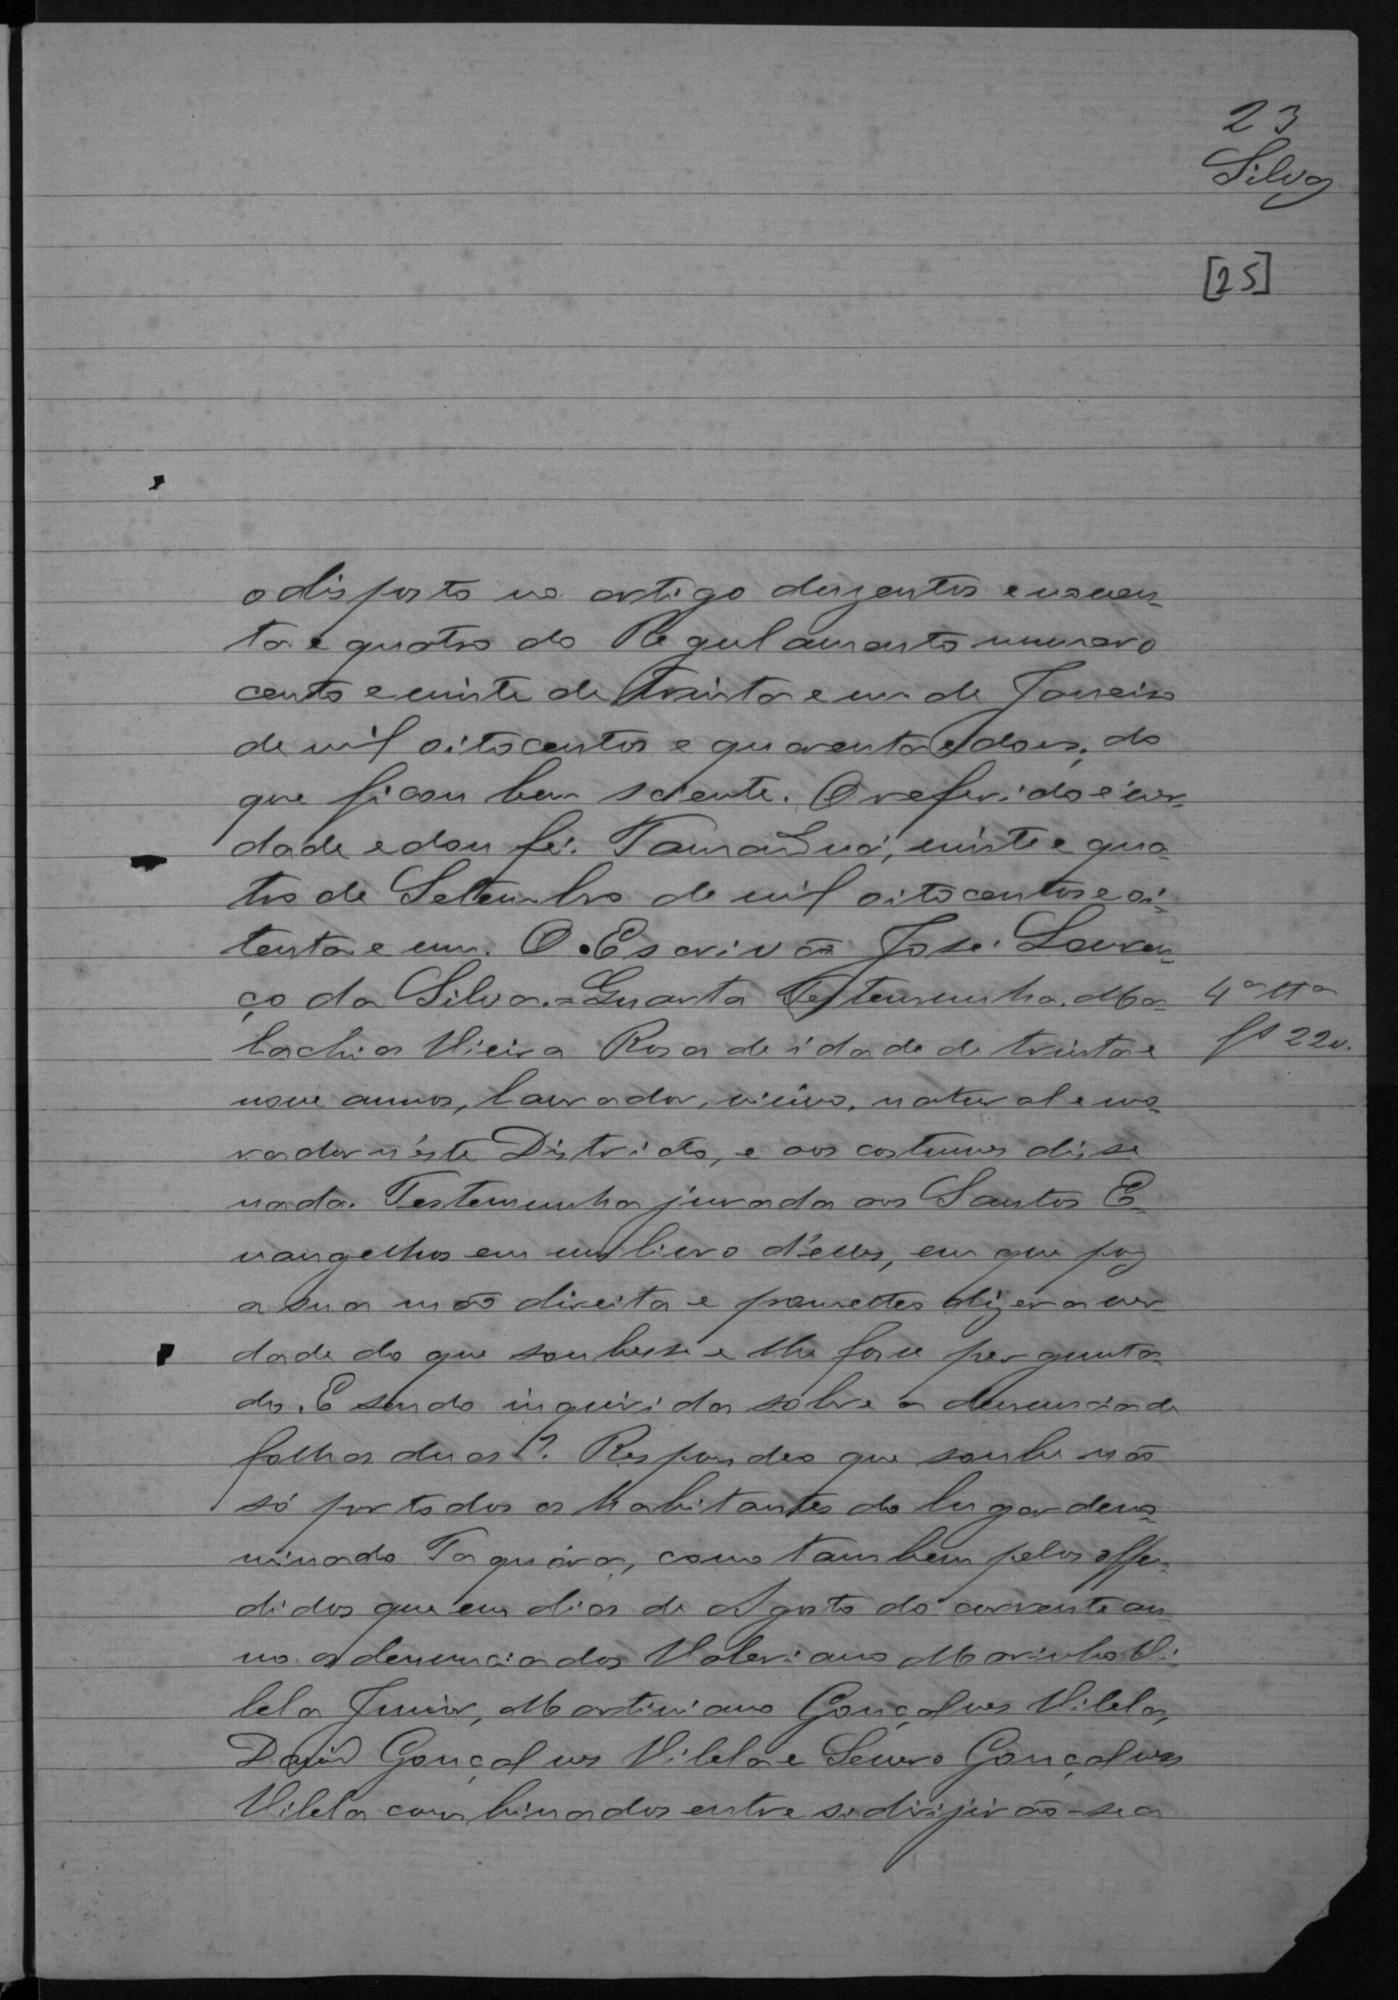 23
Silva
[25]
o disposto no artigo duzentos e noven-
ta e quatro do Regulamento numero
cento e vinte de trinta e um de Janeiro
de mil oitocentos e quarenta e dous, do
que ficou bem sciente. O referido é ver-
dade e dou fé. Tamanduá, vinte e qua-
tro de Setembro de mil oitocentos e oi-
tenta e um. O Escrivão José Louren-
ço da Silva. = Quarta Testemunha. Ma-
4ª ttª
lachias Vieira Rosa de idade de trinta e
fs 22v.
nove annos, lavrador, viuvo, natural e mo-
rador n'éste Districto, e aos costumes disse
nada. Testemunha jurada aos Santos E-
vangelhos em um livro d'elles, em que poz
a sua mão direita e prometteo dizer a ver
dade do que soubesse e lhe fosse pergunta-
do. E sendo inquirida sobre a denuncia de
folhas duas? Respondeo que soube não
só por todos os habitantes do lugar deno-
minado Taquára, como tambem pelos offen-
didos que em dias de Agosto do corrente an-
no os denunciados Valeriano Marinho Vi-
lela Junior, Martiniano Gonçalves Vilela,
David Gonçalves Vilela e Severo Gonçalves
Vilela combinados entre si dirijirão-se a